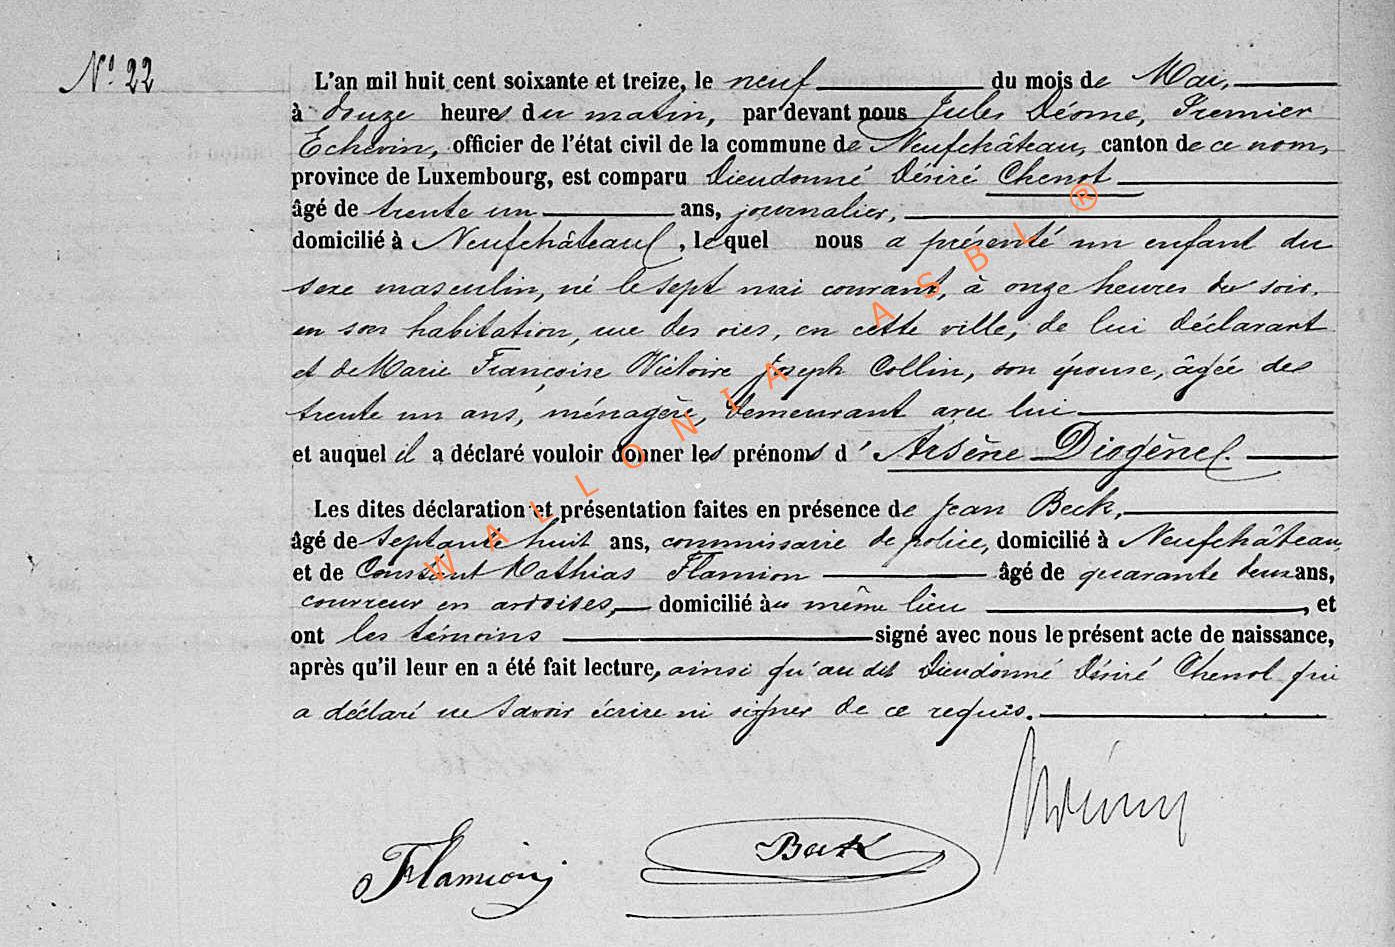 N° 22
L'an mil huit cent soixante et treize, le neuf du mois de Mai,
à douze heures du matin, par devant nous Jules Désome, Premier
Echevin, officier de l'état civil de la commune de Neufchâteau, canton de ce nom,
province de Luxembourg, est comparu Dieudonné Désiré Chenot
âgé de trente un ans, journalier,
domicilié à Neufchâteau, lequel nous a présenté un enfant du
sexe masculin, né le sept mai courant, à onze heures du soir,
en son habitation, rue des oies, en cette ville, de lui déclarant
et de Marie Françoise Victoire Joseph Collin, son épouse, âgée de
trente un ans, ménagère, demeurant avec lui
et auquel il a déclaré vouloir donner les prénoms d'Arsène Diogène
Les dites déclaration et présentation faites en présence de Jean Beck,
âgé de septante huit ans, commissaire de police, domicilié à Neufchâteau,
et de Constant Mathias Flamion âgé de quarante deux ans,
couvreur en ardoises, domicilié au même lieu, et
ont les témoins signé avec nous le présent acte de naissance,
après qu'il leur en a été fait lecture, ainsi qu'au dit Dieudonné Désiré Chenot qui
a déclaré ne savoir écrire ni signer de ce requis.
Flamion
Beck
WALLONIA ASBL ®